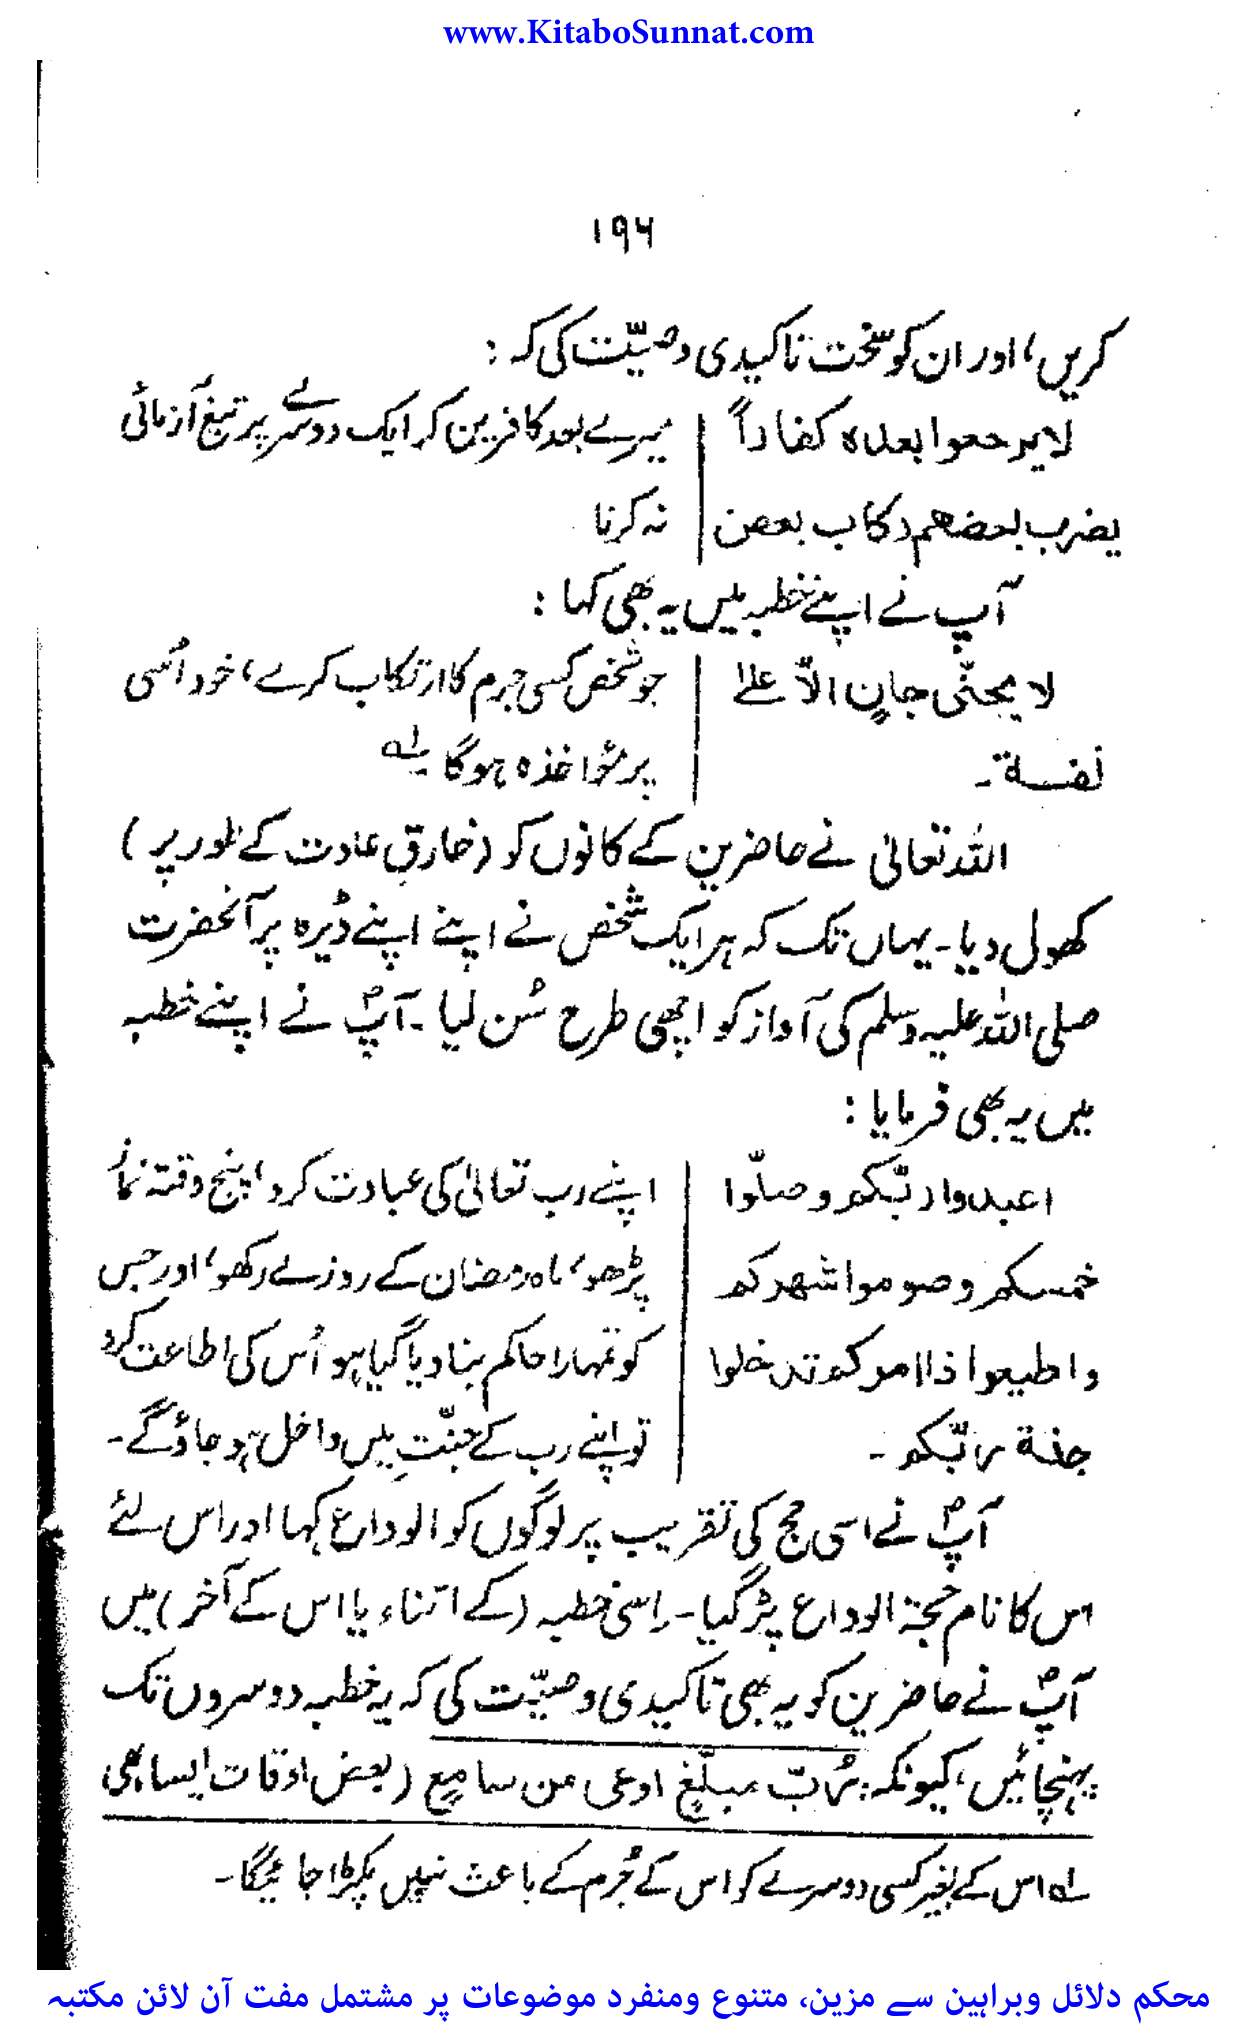 www.KitaboSunnat.com
۱۹۶
کریں، اور ان کو سخت تاکیدی وصیّت کی کہ :
لا یرجعوا بعدہ کفاراً | میرے بعد کافر بن کر ایک دوسرے پر تیغ آزمائی
یضرب بعضھم رکاب بعض | نہ کرنا
آپ نے اپنے خطبہ میں یہ بھی کہا :
لا یجنّی جانٍ الّا علےٰ | جو شخص کسی جرم کا ارتکاب کرے، خود اُسی
نفسة۔ | پر مؤاخذہ ہوگا ؎لہ
اللہ تعالیٰ نے حاضرین کے کانوں کو (خارقِ عادت کے طور پر )
کھول دیا۔ یہاں تک کہ ہر ایک شخص نے اپنے اپنے ڈیرہ پر آنحضرت
صلی اللہ علیہ وسلم کی آواز کو اچھی طرح سُن لیا ۔ آپؐ نے اپنے خطبہ
میں یہ بھی فرمایا :
اعبدوا ربّکم وصلّوا | اپنے رب تعالیٰ کی عبادت کرو، پنج وقتہ نماز
خمسکم وصوموا شھرکم | پڑھو، ماہ رمضان کے روزے رکھو، اور جس
واطیعوا ذا امرکم تدخلوا | کو تمہارا حاکم بنا دیا گیا ہو اُس کی اطاعت کرو
جنة ربّکم ۔ | تو اپنے رب کے جنّتِ میں داخل ہو جاؤ گے۔
آپؐ نے اسی حج کی تقریب پر لوگوں کو الوداع کہا اور اس لئے
اس کا نام حجۃ الوداع پڑ گیا۔ اِسی خطبہ (کے اثناء یا اس کے آخر) میں
آپؐ نے حاضرین کو یہ بھی تاکیدی وصیّت کی کہ یہ خطبہ دوسروں تک
پہنچائیں، کیونکہ: رُبّ مبلّغٍ اوعی من سامعٍ (بعض اوقات ایسا بھی
لہ اس کے بغیر کسی دوسرے کو اس کے جُرم کے باعث نہیں پکڑا جائیگا۔
محکم دلائل وبراہین سے مزین، متنوع ومنفرد موضوعات پر مشتمل مفت آن لائن مکتبہ